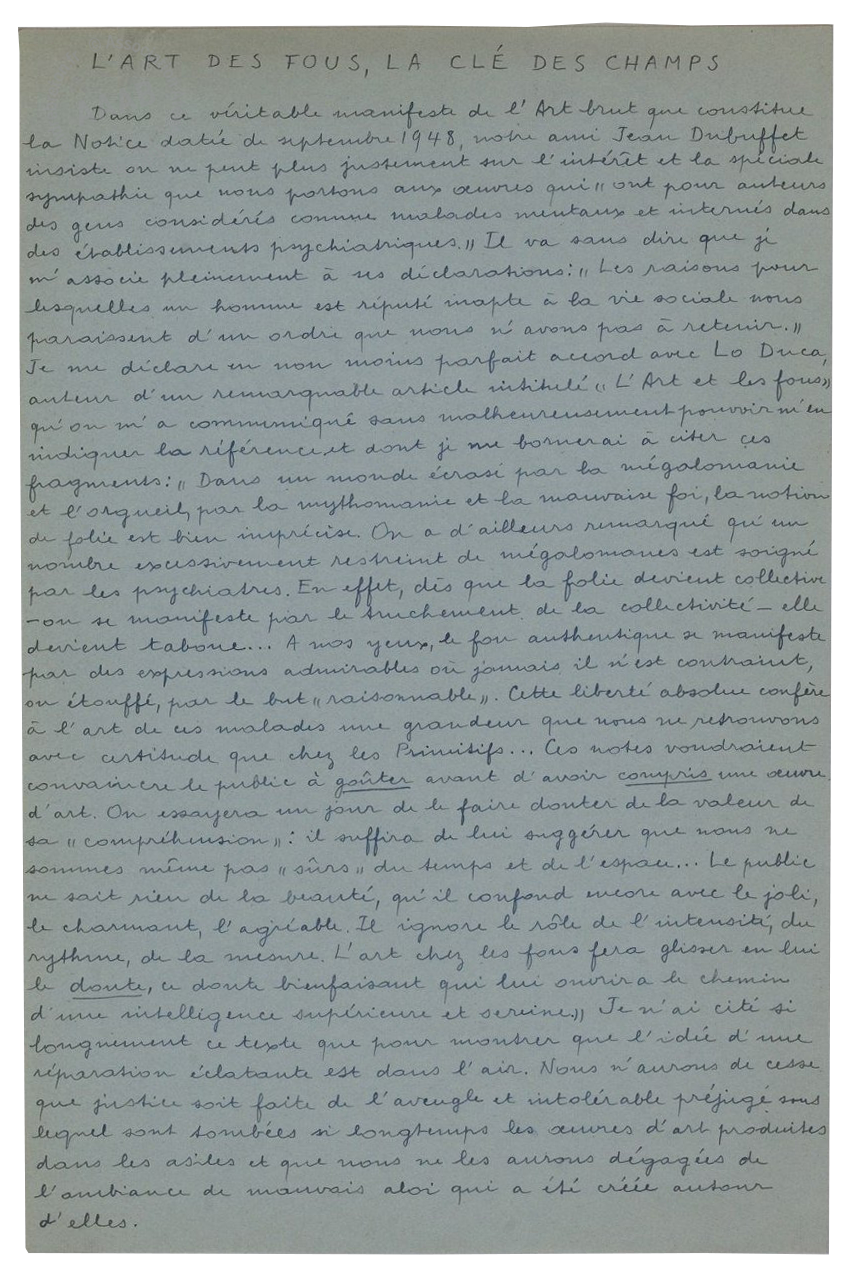 L'ART DES FOUS, LA CLÉ DES CHAMPS
Dans ce véritable manifeste de l'Art brut que constitue
la Notice datée de septembre 1948, notre ami Jean Dubuffet
insiste on ne peut plus justement sur l'intérêt et la spéciale
sympathie que nous portons aux œuvres qui « ont pour auteurs
des gens considérés comme malades mentaux et internés dans
des établissements psychiatriques. » Il va sans dire que je
m'associe pleinement à ses déclarations : « Les raisons pour
lesquelles un homme est réputé inapte à la vie sociale nous
paraissent d'un ordre que nous n'avons pas à retenir. »
Je me déclare en non moins parfait accord avec Lo Duca,
auteur d'un remarquable article intitulé « L'Art et les fous »
qu'on m'a communiqué sans malheureusement pouvoir m'en
indiquer la référence et dont je me bornerai à citer ces
fragments : « Dans un monde écrasé par la mégalomanie
et l'orgueil, par la mythomanie et la mauvaise foi, la notion
de folie est bien imprécise. On a d'ailleurs remarqué qu'un
nombre excessivement restreint de mégalomanes est soigné
par les psychiatres. En effet, dès que la folie devient collective
— ou se manifeste par le truchement de la collectivité — elle
devient taboue... A nos yeux, le fou authentique se manifeste
par des expressions admirables où jamais il n'est contraint,
ou étouffé, par le but « raisonnable ». Cette liberté absolue confère
à l'art de ces malades une grandeur que nous ne retrouvons
avec certitude que chez les Primitifs... Ces notes voudraient
convaincre le public à goûter avant d'avoir compris une œuvre
d'art. On essayera un jour de le faire douter de la valeur de
sa « compréhension » : il suffira de lui suggérer que nous ne
sommes même pas « sûrs » du temps et de l'espace... Le public
ne sait rien de la beauté, qu'il confond encore avec le joli,
le charmant, l'agréable. Il ignore le rôle de l'intensité, du
rythme, de la mesure. L'art chez les fous fera glisser en lui
le doute, ce doute bienfaisant qui lui ouvrira le chemin
d'une intelligence supérieure et sereine. » Je n'ai cité si
longuement ce texte que pour montrer que l'idée d'une
réparation éclatante est dans l'air. Nous n'aurons de cesse
que justice soit faite de l'aveugle et intolérable préjugé sous
lequel sont tombées si longtemps les œuvres d'art produites
dans les asiles et que nous ne les aurons dégagées de
l'ambiance de mauvais aloi qui a été créée autour
d'elles.